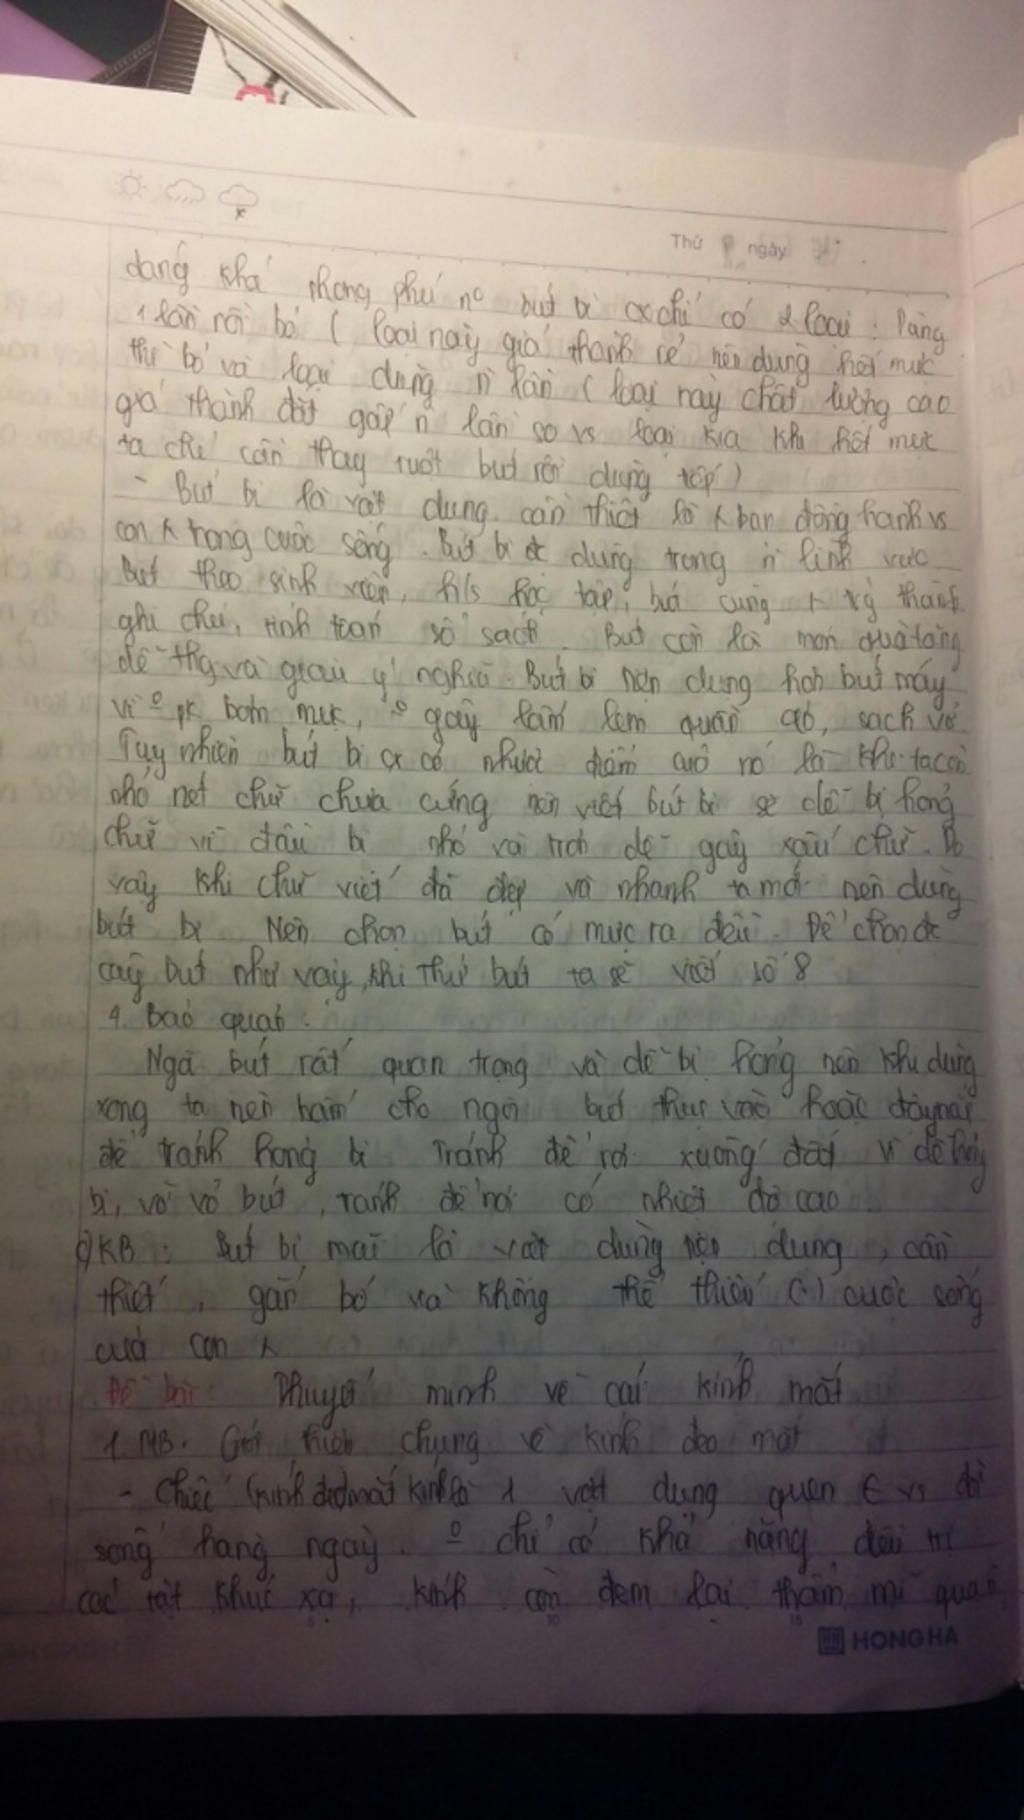 Thứ ngày
dạng khá phong phú nº bút bi cx chỉ có 2 loại: Dùng
1 lần rồi bỏ ( loại này giá thành rẻ nên dùng hết mực
thì bỏ và loại dùng n lần ( loại này chất lượng cao
giá thành đắt gấp n lần so vs loại kia khi hết mực
ta chỉ cần thay ruột bút rồi dùng tiếp)
- Bút bi là vật dụng cần thiết là bạn đồng hành vs
con trong cuộc sống. Bút bi đc dùng trong n lĩnh vực
Bút theo sinh viên, h/s học tập, bút cùng thành
ghi chú, tính toán sổ sách. Bút còn là món quà tặng
dễ thg và giàu ý nghĩa. Bút bi tiện dụng hơn bút máy
vì º pk bơm mực, º gây lấm lem quần áo, sách vở
Tuy nhiên bút bi cx có nhược điểm của nó là khi ta còn
nhỏ nét chữ chưa cứng nên viết bút bi sẽ dễ bị hỏng
chữ vì đầu bi nhỏ và trơn dễ gây xấu chữ. Do
vậy khi chữ viết đã đẹp và nhanh ta mới nên dùng
bút bi Nên chọn bút có mực ra đều. Để chọn đc
cây bút như vậy, khi thử bút ta sẽ viết số 8
4. Bảo quản:
Ngòi bút rất quan trọng và dễ bị hỏng nên khi dùng
xong ta nên bấm cho ngòi bút thụt vào hoặc đậy nắp
để tránh hỏng bi Tránh để rơi xuống đất vì dễ hỏng
bi, vỡ vỏ bút, tránh để nơi có nhiệt độ cao
c) KB: Bút bi mãi là vật dụng tiện dụng, cần
thiết, gắn bó và không thể thiếu (.) cuộc sống
của con
Đề bài: Thuyết minh về cái kính mắt
1. MB. Giới thiệu chung về kính đeo mắt
- Chiếc kính đeo mắt là 1 vật dụng quen € vs đời
sống hàng ngày. º chỉ có khả năng điều trị
các tật khúc xạ, kính còn đem lại thẩm mĩ quan
HONG HA